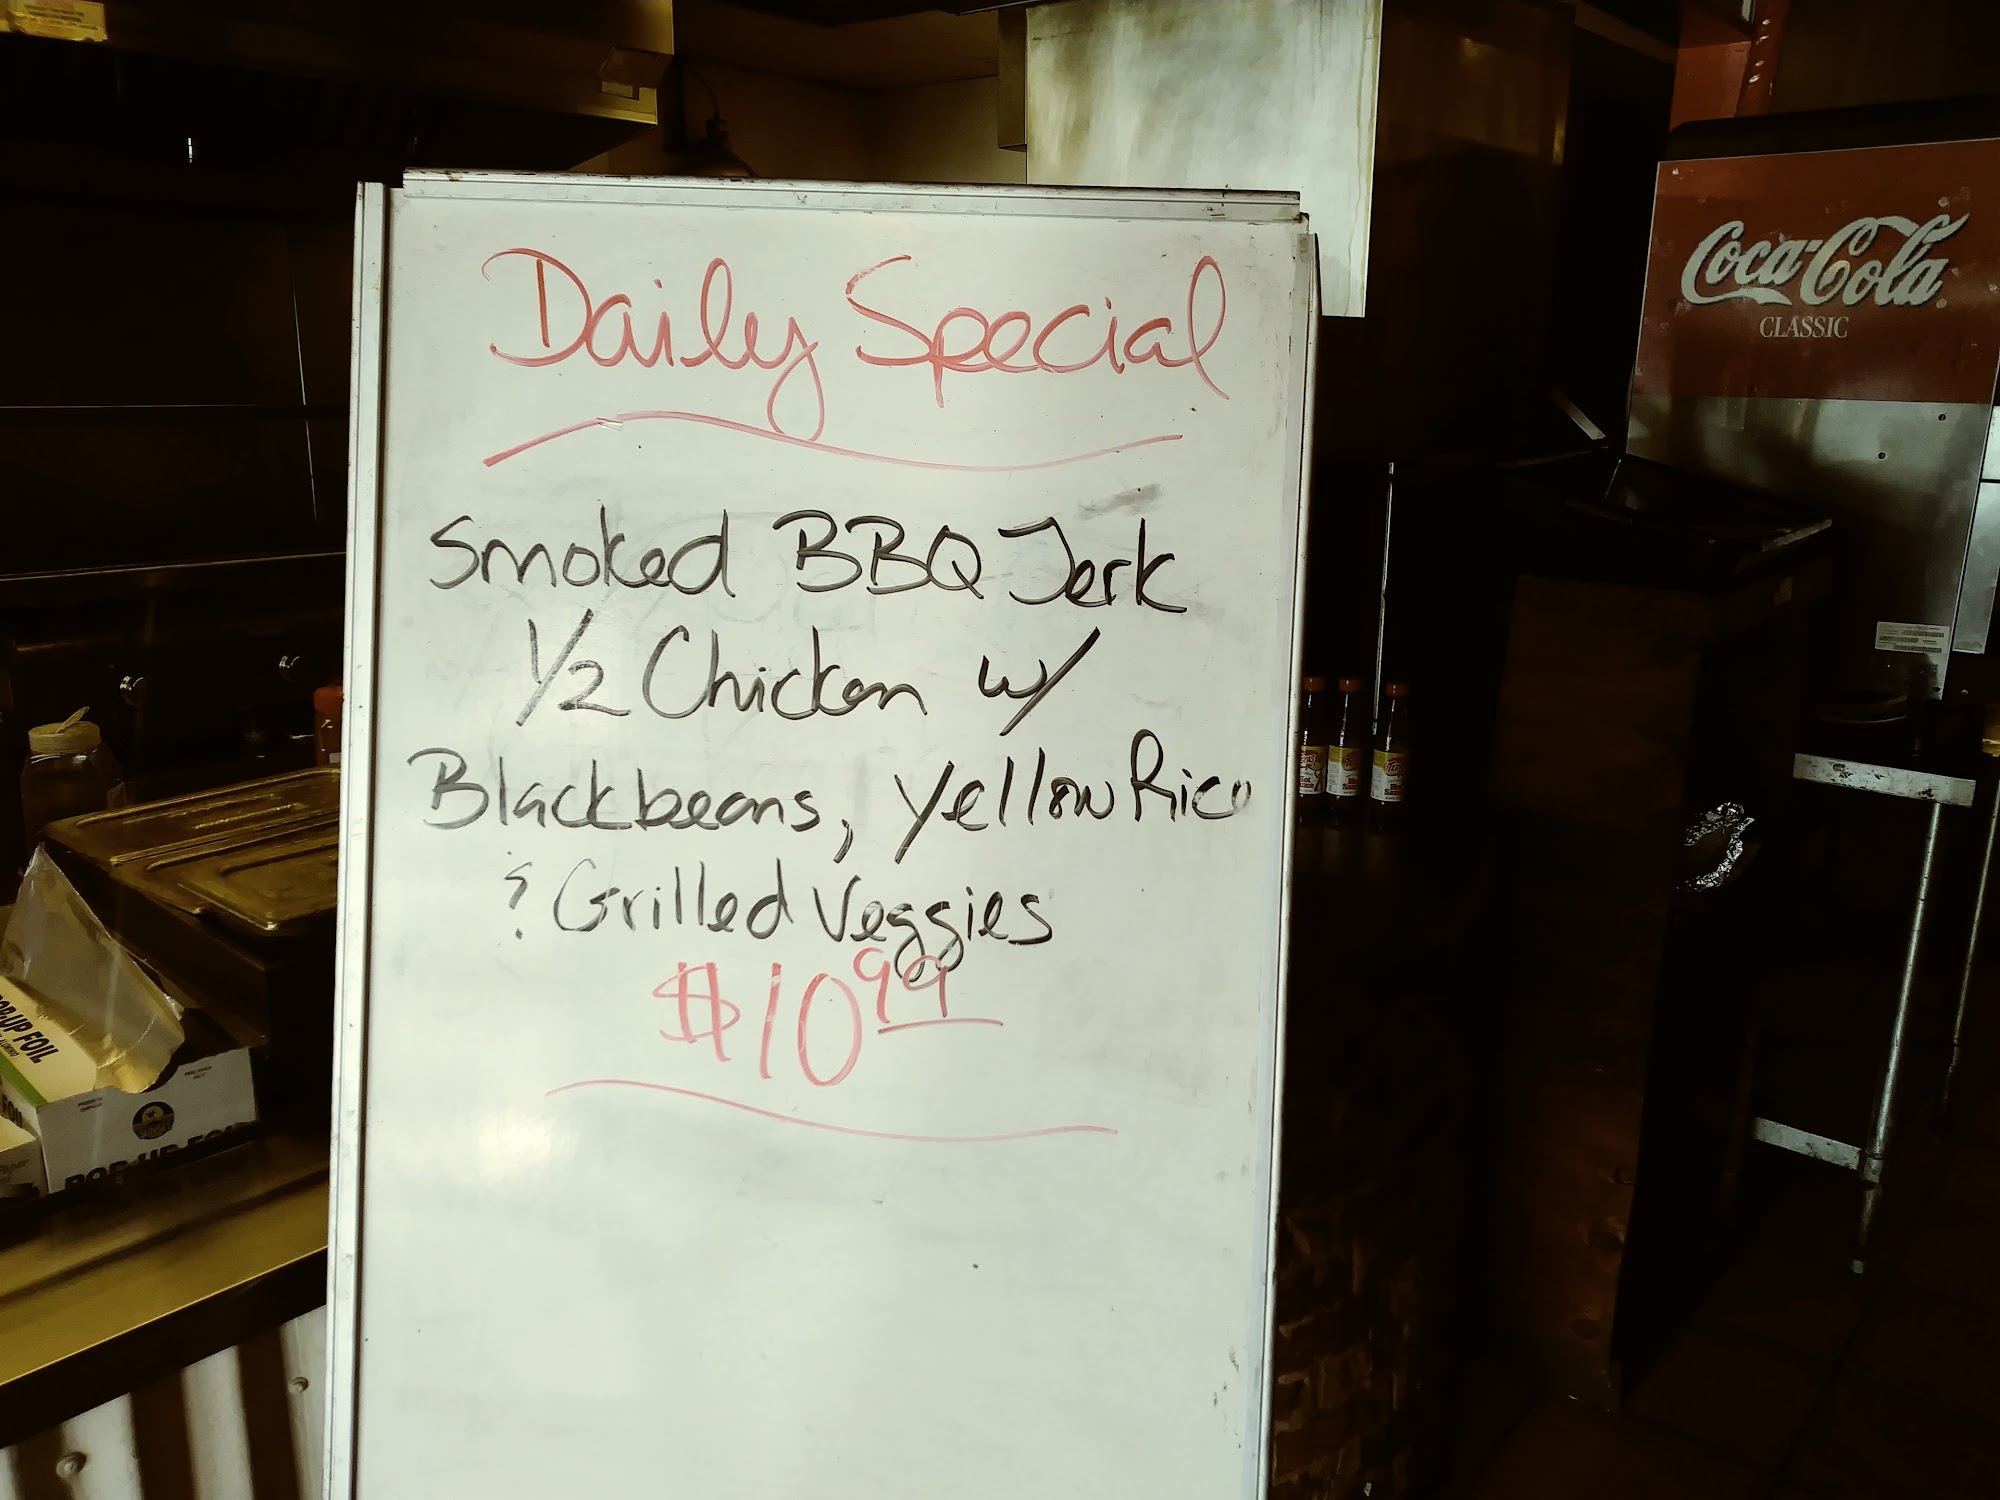 Daily Special
Smoked BBQ Jerk
1/2 Chicken w/
Blackbeans, Yellow Rice
& Grilled Veggies
$10.99
Coca-Cola
CLASSIC
POP-UP FOIL
POP-UP FOIL